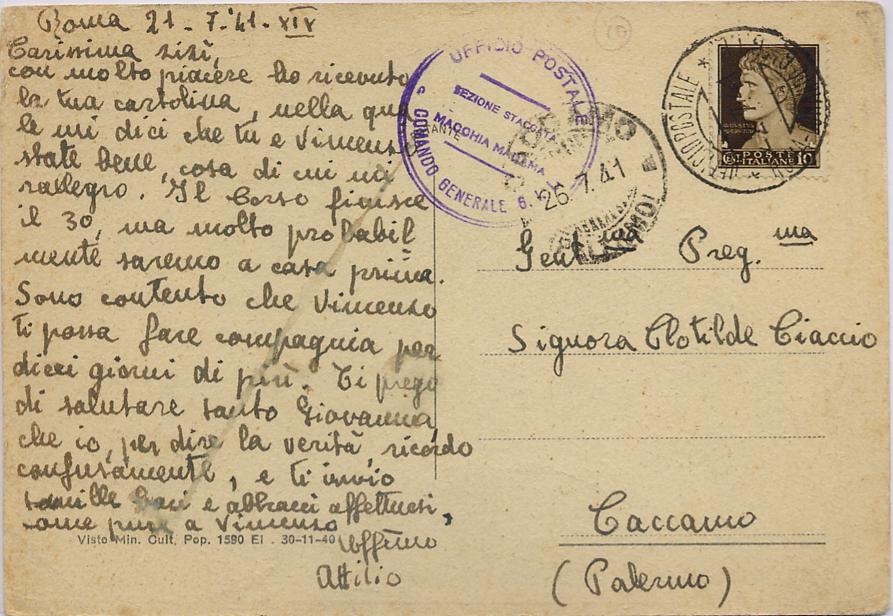 Roma 21-7-'41-XIX
Carissima zizì,
con molto piacere ho ricevuto
la tua cartolina, nella qua
le mi dici che tu e Vincenzo
state bene, cosa di cui mi
rallegro. Il Corso finisce
il 30, ma molto probabil
mente saremo a casa prima.
Sono contento che Vincenzo
ti possa fare compagnia per
dieci giorni di più. Ti prego
di salutare tanto Giovanna,
che io, per dire la verità, ricordo
confusamente, e ti invio
mille baci e abbracci affettuosi,
come pure a Vincenzo
Aff.mo
Attilio
Visto Min. Cult. Pop. 1590 EI . 30-11-40
UFFICIO POSTALE
SEZIONE STACCATA
MACCHIA MADAMA
COMANDO GENERALE G.
26.7.41
UFFICIO POSTALE
POSTE
ITALIANE
10
Gent.ma Preg.ma
Signora Clotilde Ciaccio
Caccamo
(Palermo)